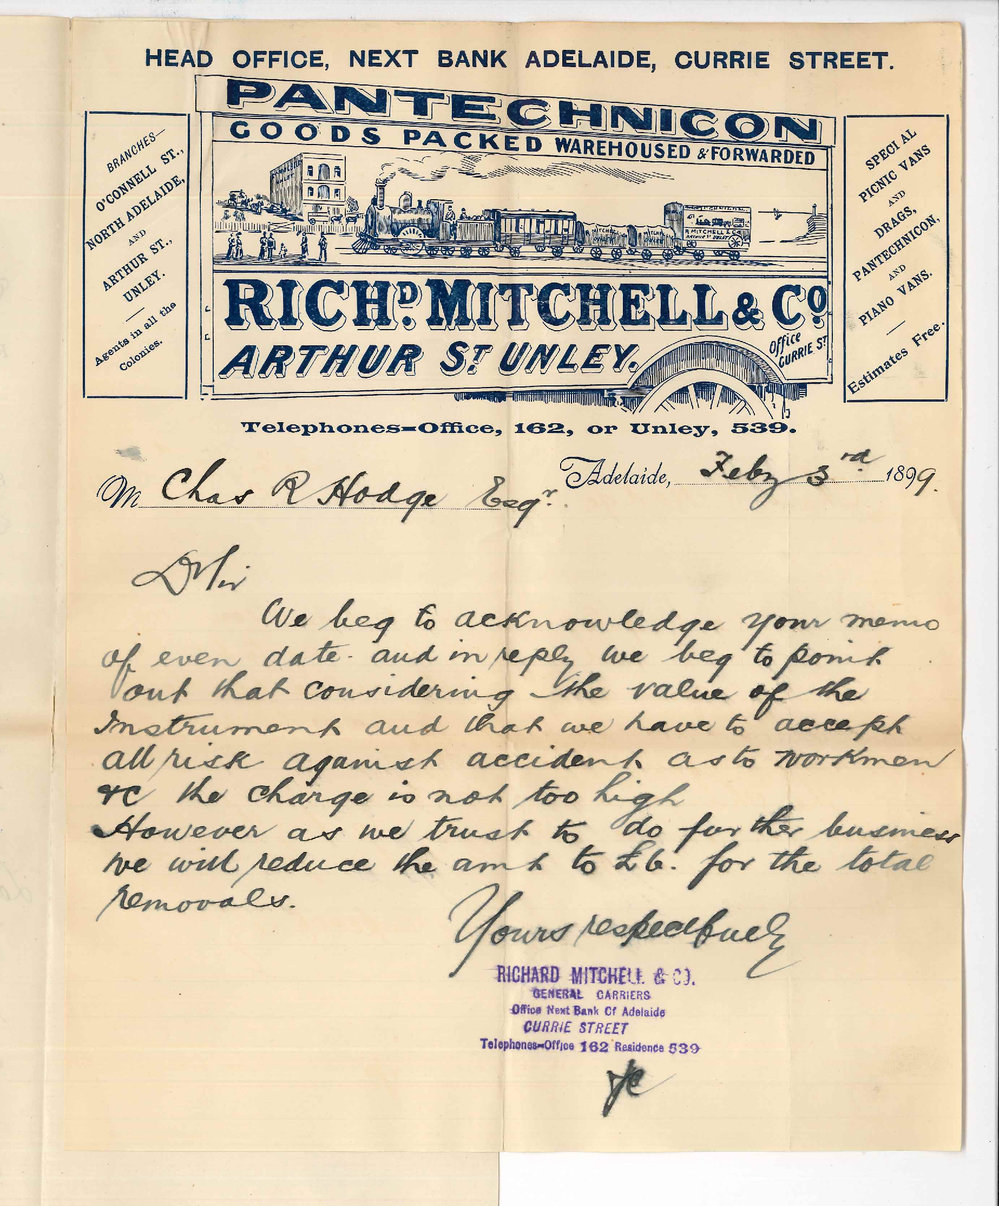 HEAD OFFICE, NEXT BANK ADELAIDE, CURRIE STREET.
PANTECHNICON
GOODS PACKED WAREHOUSED & FORWARDED
BRANCHES—
O'CONNELL ST.,
NORTH ADELAIDE,
AND
ARTHUR ST.,
UNLEY.
Agents in all the
Colonies.
R. MITCHELL & Co
ARTHUR ST UNLEY
RICHD. MITCHELL & CO.
ARTHUR ST UNLEY.
Office
CURRIE ST
SPECIAL
PICNIC VANS
AND
DRAGS,
PANTECHNICON,
AND
PIANO VANS.
Estimates Free.
Telephones=Office, 162, or Unley, 539.
Adelaide, Feby 3rd 1899.
M Chas R Hodge Esqr.
D Sir
We beg to acknowledge your memo
of even date. and in reply we beg to point
out that considering the value of the
Instrument and that we have to accept
all risk against accident as to workmen
&c the charge is not too high
However as we trust to do further business
we will reduce the amt to £6. for the total
removals.
Yours respectfully
RICHARD MITCHELL & CO.
GENERAL CARRIERS
Office Next Bank Of Adelaide
CURRIE STREET
Telephones=Office 162 Residence 539